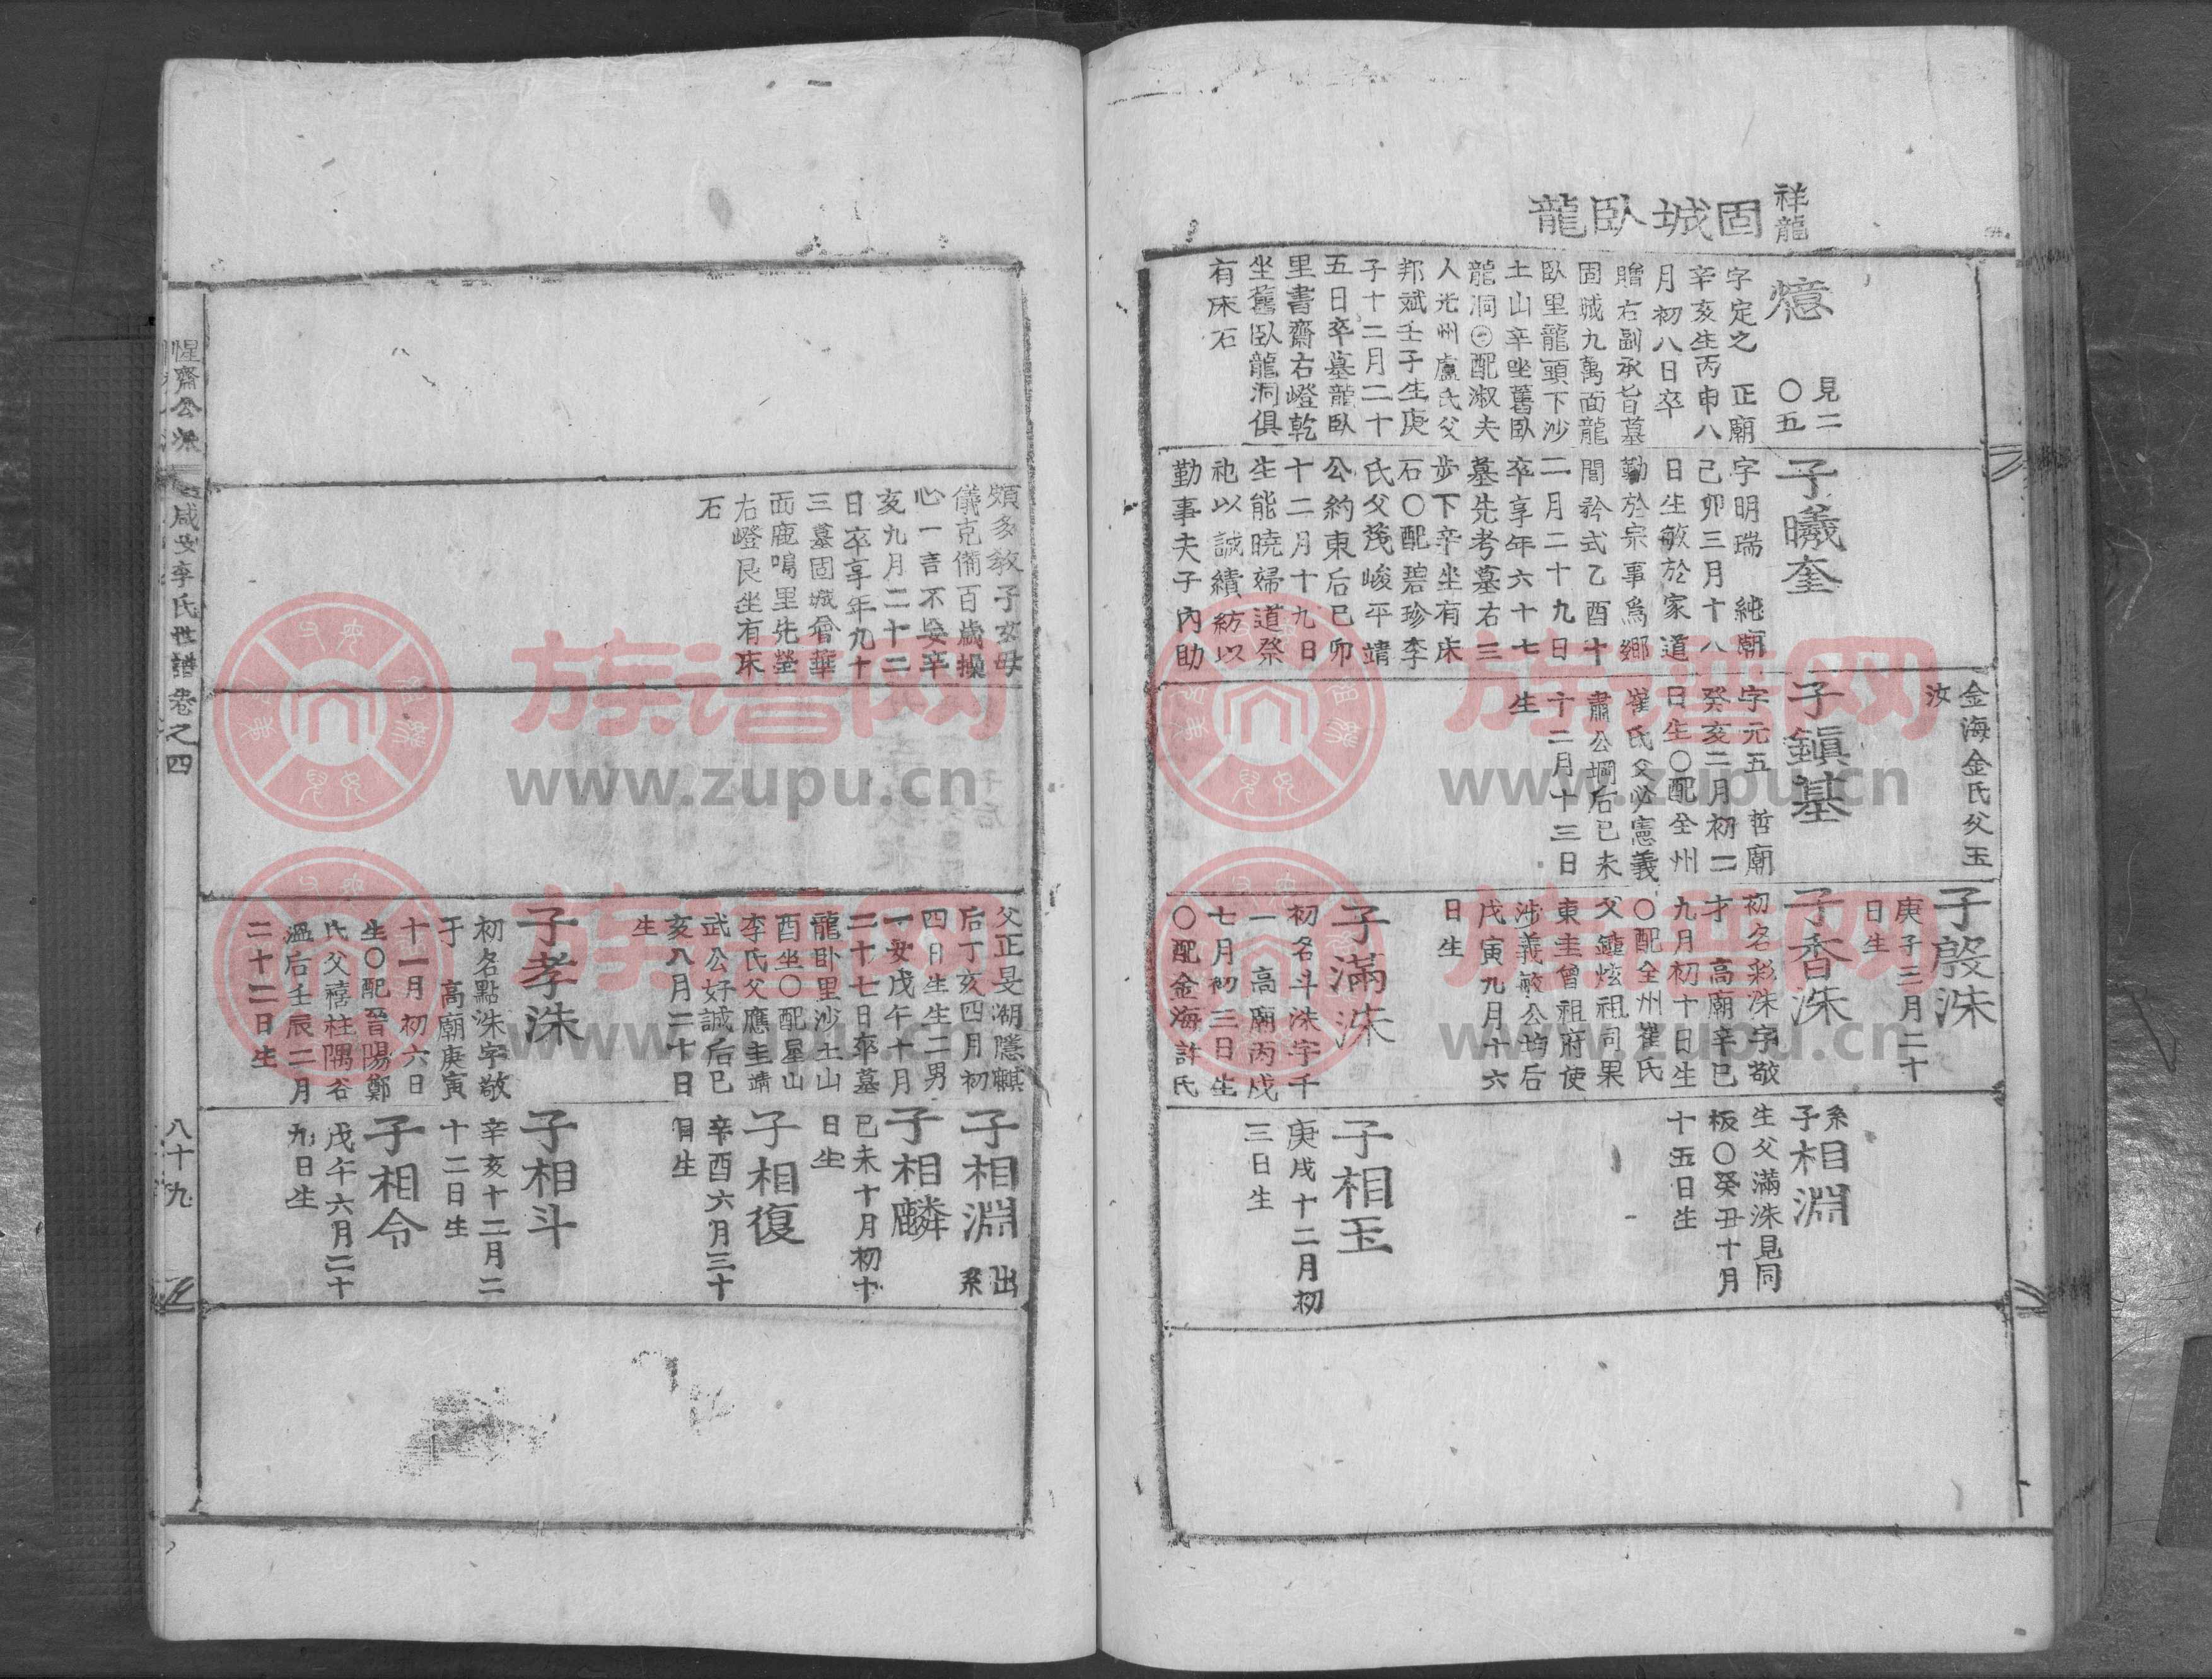 祥龍
固城臥龍
憶
見二
〇五
字定之　正廟
辛亥生丙申八
月初八日卒
贈右副承旨墓
固城九萬面龍
臥里龍頭下沙
土山辛坐舊臥
龍洞㊀配淑夫
人光州盧氏父
邦斌壬子生庚
子十二月二十
五日卒墓龍臥
里書齋右嶝乾
坐舊臥龍洞俱
有床石
子曦奎
字明瑞　純廟
己卯三月十八
日生敏於家道
勤於宗事爲鄉
閭矜式乙酉十
二月二十九日
卒享年六十七
墓先考墓右三
步下辛坐有床
石〇配碧珍李
氏父箋峻平靖
公約東后己卯
十二月十九日
生能曉婦道祭
祀以誠績紡以
勤事夫子內助
金海金氏父玉
汝
子鎭基
字元五　哲廟
癸亥二月初二
日生〇配全州
崔氏父必憲義
肅公堈后己未
十二月十三日
生
子殷洙
庚子三月二十
日生
子香洙
初名彩洙字敬
才　高廟辛巳
九月初十日生
〇配全州崔氏
父鍾炫祖同果
東圭曾祖府使
涉義敏公均后
戊寅九月十六
日生
子滿洙
初名斗洙字千
一　高廟丙戌
七月初三日生
〇配金海許氏
系
子相淵
生父滿洙見同
板〇癸丑十月
十五日生
子相玉
庚戌十二月初
三日生
頗多敎子女母
儀克備百歲操
心一言不妄辛
亥九月二十二
日卒享年九十
三墓固城會華
面鹿鳴里先塋
右嶝艮坐有床
石
父正旻湖隱麒
后丁亥四月初
四日生生二男
一女戊午十月
二十七日卒墓
龍卧里沙土山
酉坐〇配星山
李氏父應圭靖
武公好誠后己
亥八月二十日
生
子孝洙
初名點洙字敬
于　高廟庚寅
十一月初六日
生〇配晉陽鄭
氏父禧柱隅谷
溫后壬辰二月
二十二日生
子相淵　出系
子相麟
己未十月初十
日生
子相復
辛酉六月三十
日生
子相斗
辛亥十二月二
十二日生
子相令
戊午六月二十
九日生
惺齋公派
咸安李氏世譜卷之四
八十九
族谱网
www.zupu.cn
族谱网
www.zupu.cn
族谱网
www.zupu.cn
族谱网
www.zupu.cn